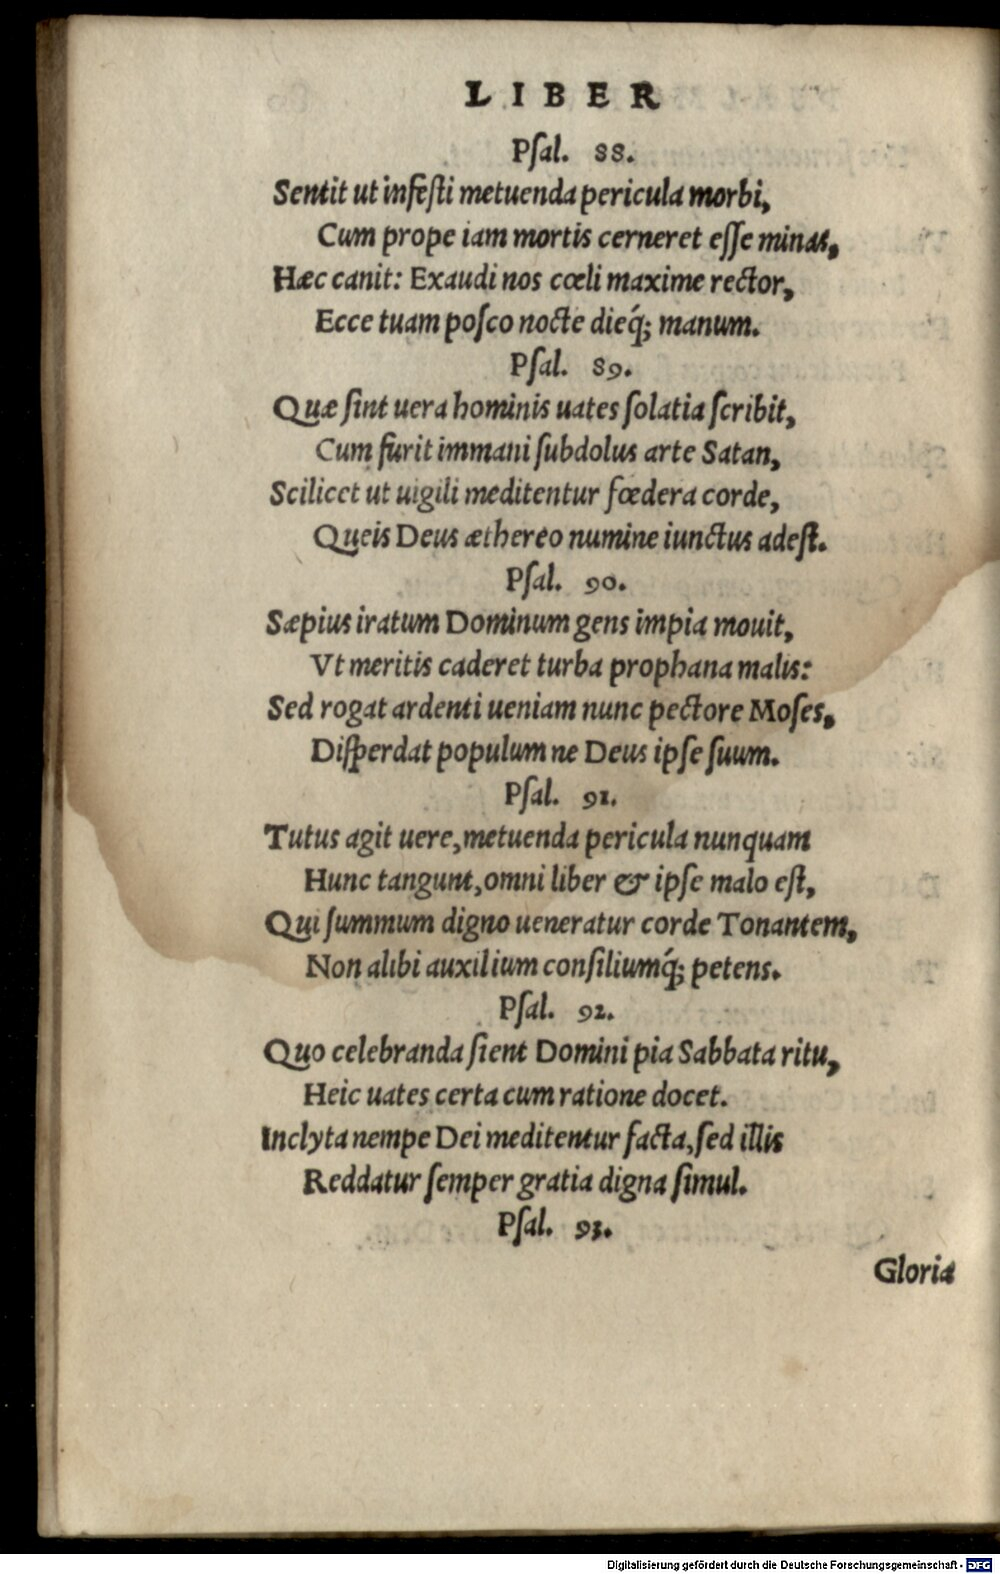 LIBER
Pſal. 88.
Sentit ut infeſti metuenda pericula morbi,
Cum prope iam mortis cerneret eſſe minas,
Hæc canit: Exaudi nos cœli maxime rector,
Ecce tuam poſco nocte dieq́; manum.
Pſal. 89.
Quæ ſint uera hominis uates ſolatia ſcribit,
Cum furit immani ſubdolus arte Satan,
Scilicet ut uigili meditentur fœdera corde,
Queis Deus æthereo numine iunctus adeſt.
Pſal. 90.
Sæpius iratum Dominum gens impia mouit,
Vt meritis caderet turba prophana malis:
Sed rogat ardenti ueniam nunc pectore Moſes,
Diſperdat populum ne Deus ipſe ſuum.
Pſal. 91.
Tutus agit uere, metuenda pericula nunquam
Hunc tangunt, omni liber & ipſe malo eſt,
Qui ſummum digno ueneratur corde Tonantem,
Non alibi auxilium conſiliumq́; petens.
Pſal. 92.
Quo celebranda ſient Domini pia Sabbata ritu,
Heic uates certa cum ratione docet.
Inclyta nempe Dei meditentur facta, ſed illis
Reddatur ſemper gratia digna ſimul.
Pſal. 93.
Gloria
Digitalisierung gefördert durch die Deutsche Forschungsgemeinschaft - DFG